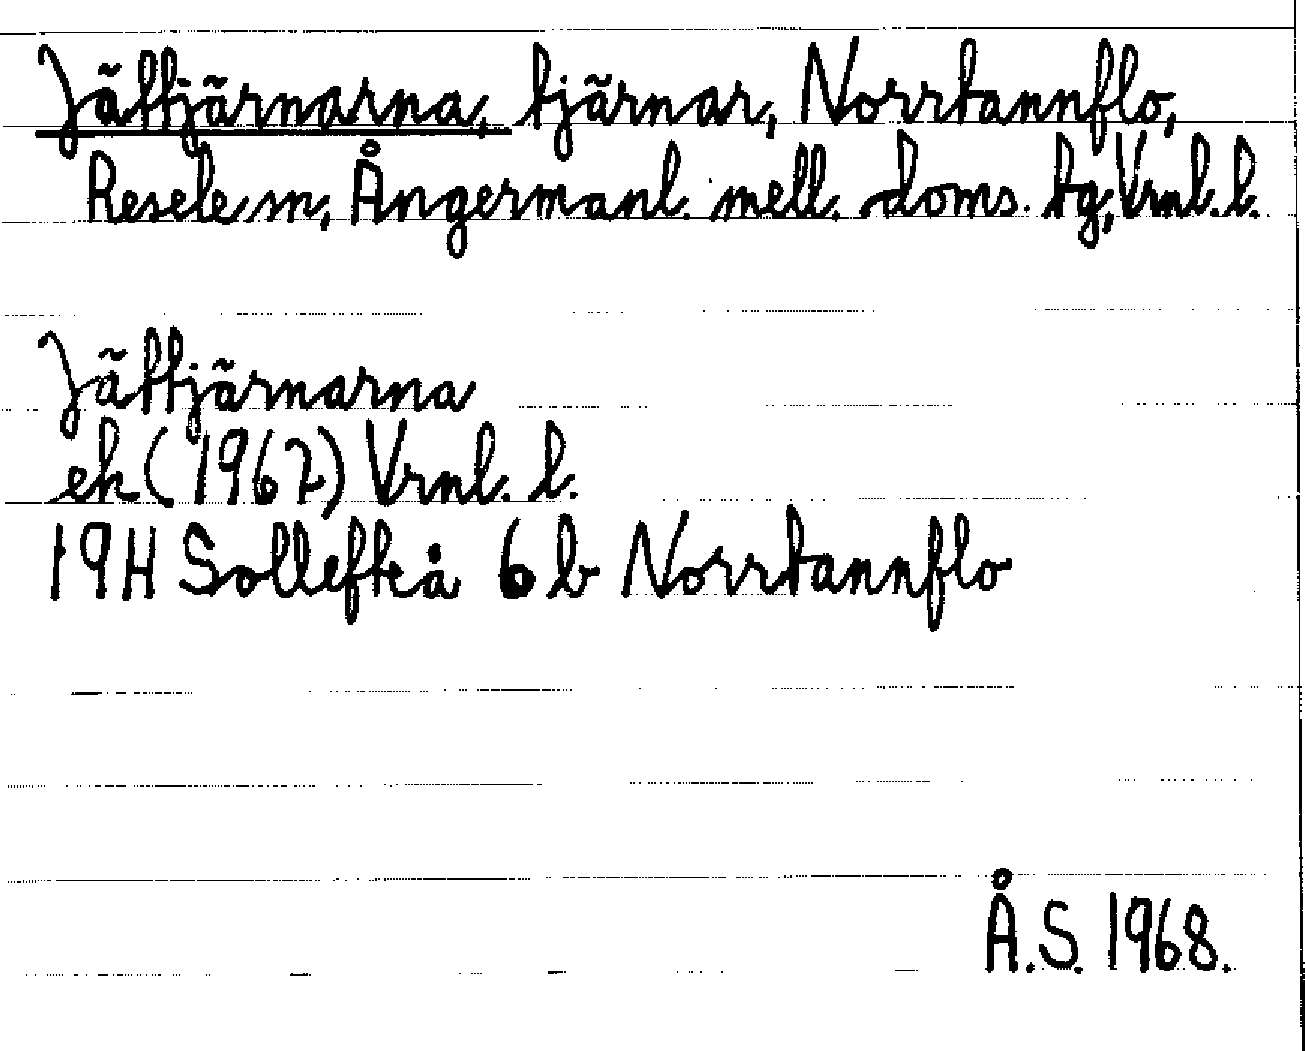 Jättjärnarna, tjärnar, Norrtannflo,
Resele sn, Ångermanl. mell. doms. tg, Vrnl. l.
Jättjärnarna
ek (1967) Vrnl. l.
19H Sollefteå 6 b Norrtannflo
Å.S. 1968.